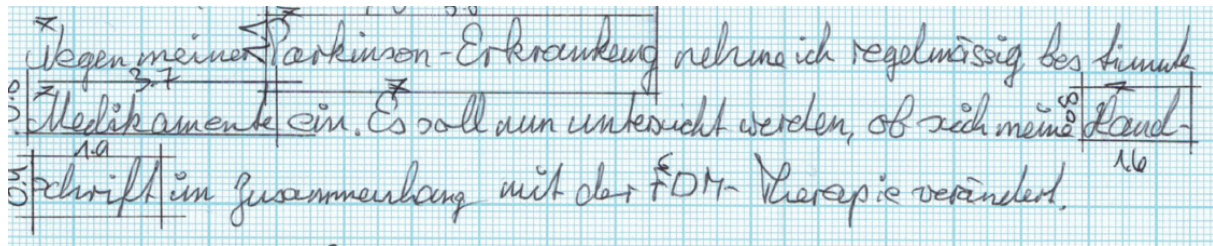 Wegen meiner Parkinson-Erkrankung nehme ich regelmässig bestimmte
3.7
Medikamente ein. Es soll nun untersucht werden, ob sich meine Hand-
1.9 16
schrift im Zusammenhang mit der FDM-Therapie verändert.